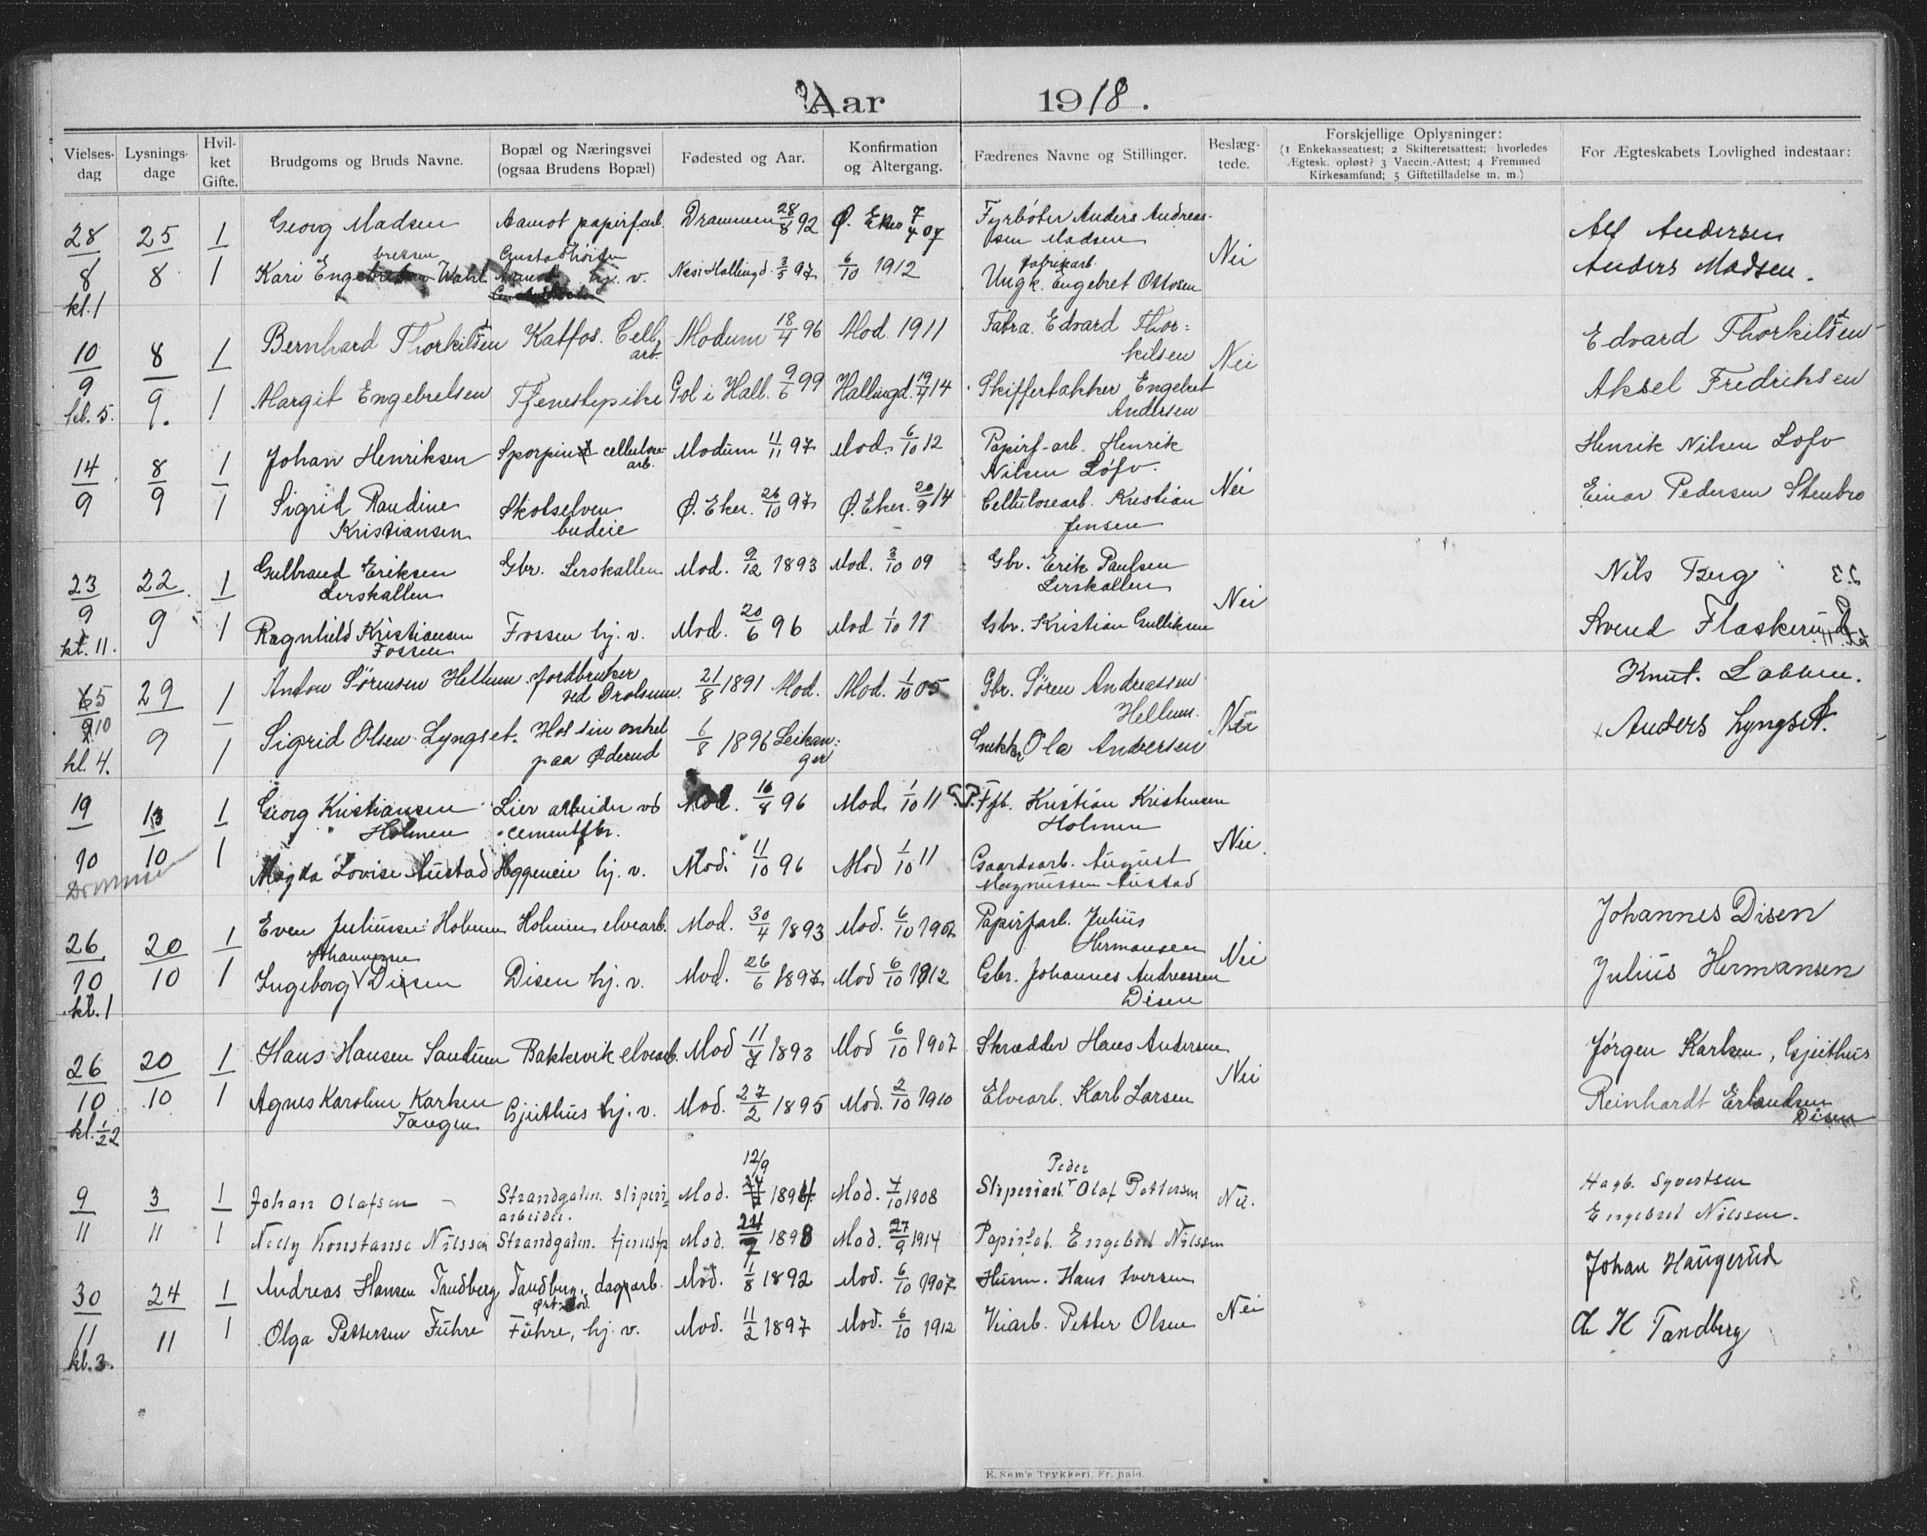 Aar 1918.
Vielses-dag
Lysnings-dage
Hvil-ket Gifte.
Brudgoms og Bruds Navne.
Bopæl og Næringsvei (ogsaa Brudens Bopæl)
Fødested og Aar.
Konfirmation og Altergang.
Fædrenes Navne og Stillinger.
Beslæg-tede.
Forskjellige Oplysninger: (1 Enkekasseattest; 2 Skifteretsattest; hvorledes Ægtesk. opløst? 3 Vaccin.-Attest; 4 Fremmed Kirkesamfund; 5 Giftetilladelse m. m.)
For Ægteskabets Lovlighed indestaar:
28 25 1 Georg Madsen Aamot papirfarb. Drammen 28/8 92 Ø. Eker 7/4 07 Fyrbøter Anders Andreas-
sen Madsen Nei Alf Andersen
bretsen Gustad
8 8 1 Kari Engebretsen Wahl hj. v. Nesi Hallingd. 3/5 97 6/10 1912 fabrikarb.
Ungk. Engebret Ottosen Anders Madsen.
kl. 1
10 8 1 Bernhard Thorkildsen Katfos. Cell. arb. Modum 18/4 96 Mod. 1911 Fabra. Edvard Thor=
kilsen Nei Edvard Thorkildsen
9 9. 1 Margit Engebretsen Tjenestepike Gol i Hall. 9/6 99 Hallingd. 19/7 14 Skiffertækker Engebret
Andersen Aksel Fredriksen
kl. 5.
14 8 1 Johan Henriksen Sporpind cellulose-arb. Modum 11/11 97 Mod. 6/10 12 Papirf-arb. Henrik
Nilsen Løfv. Nei Henrik Nilsen Lofv
9 9 1 Sigrid Randine
Kristiansen Skotselven
budeie Ø. Eker. 26/10 97 Ø. Eker. 20/9 14 Cellulosearb. Kristian
Jensen Einar Pedersen Stenbro
23 22. 1 Gulbrand Eriksen
Lerskallen Gbr. Lerskallen Mod. 9/12 1893 Mod. 3/10 09 Gbr. Erik Paulsen
Lerskallen Nei Nils Berg
9 9 1 Ragnhild Kristiansen
Fossen Fossen hj. v. Mod. 20/6 96 Mod 1/10 11 Gbr. Kristian Gulliksen Svend Flaskerud
kl. 11.
5 29 1 Anton Sørensen Hellum Jordbruker
ved Drolsum. 21/8 1891 Mod. Mod. 1/10 05 Gbr. Søren Andreassen
Hellum. Nei Knut. Labben.
10 9 1 Sigrid Olsen Lyngset. Hos sin onkel
paa Øderud 6/8 1896 Leikan=
ger Snekker Ola Andersen Anders Lyngset.
kl. 4.
19 13 1 Georg Kristiansen
Holmen Lier arbeider vd
cementfbr. Mod. 16/8 96 Mod 1/10 11 Fyb. Kristian Kristensen
Holmen Nei.
10 10 1 Magda Lovise Austad Heggeneie hj. v. Mod. 11/10 96 Mod 1/10 11 Gaardsarb. August
Magnussen Austad
Drammen
26 20 1 Even Juliussen Holmen Holmen elvearb. Mod. 30/4 1893 Mod. 6/10 1907 Papirfarb. Julius
Hermansen Nei Johannes Disen
Johannesen
10 10 1 Ingeborg Disen Disen hj. v. Mod. 26/6 1897 Mod 6/10 1912 Gbr. Johannes Andreassen
Disen Julius Hermansen
kl. 1
26 20 1 Hans Hansen Sandum Bakkevik elvearb. Mod 11/7 1893 Mod 6/10 1907 Skrædder Hans Andersen Nei Jørgen Karlsen, Gjeithus
10 10 1 Agnes Karoline Karlsen
Tangen Gjeithus hj. v. Mod. 27/2 1895 Mod. 2/10 1910 Elvearb. Karl Larsen Reinhardt Erlandsen
Disen
kl. 1/22
12/9 Peder
9 3 1 Johan Olafsen Strandgaten. sliperi=
arbeider. Mod. 1894 Mod. 4/10 1908 Sliperiarb. Olaf Pettersen Nei. Hagb. Syvertsen
11 11 1 Nelly Konstanse Nilssen Strandgaten. tjenestp Mod. 24/7 1898 Mod. 27/9 1914 Papirfab. Engebret Nilssen Engebret Nilssen.
30 24 1 Andreas Hansen Tandberg Tandberg, dagarb. Mod. 1/8 1892 Mod. 6/10 1907 Husm. Hans Iversen Nei Johan Haugerud
11 11 1 Olga Pettersen Fuhre Fuhre, hj. v. Mod. 11/2 1897 Mod. 6/10 1912 Veiarb. Petter Olsen H Tandberg
kl. 3.
E. Sem's Trykkeri, Fr.hald.